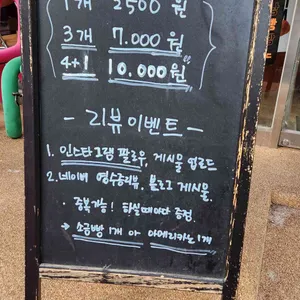 1개 2500원
3개 7.000원
4+1 10.000원
- 리뷰이벤트 -
1. 인스타그램 팔로우, 게시물 업로드
2. 네이버 영수증리뷰, 블로그 게시물.
· 중복가능! 하실때마다 증정
→ 소금빵 1개 or 아메리카노 1개